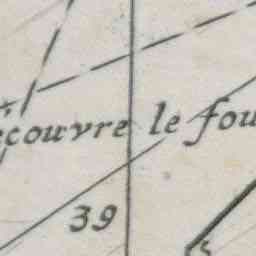 ecouvre le fou
39